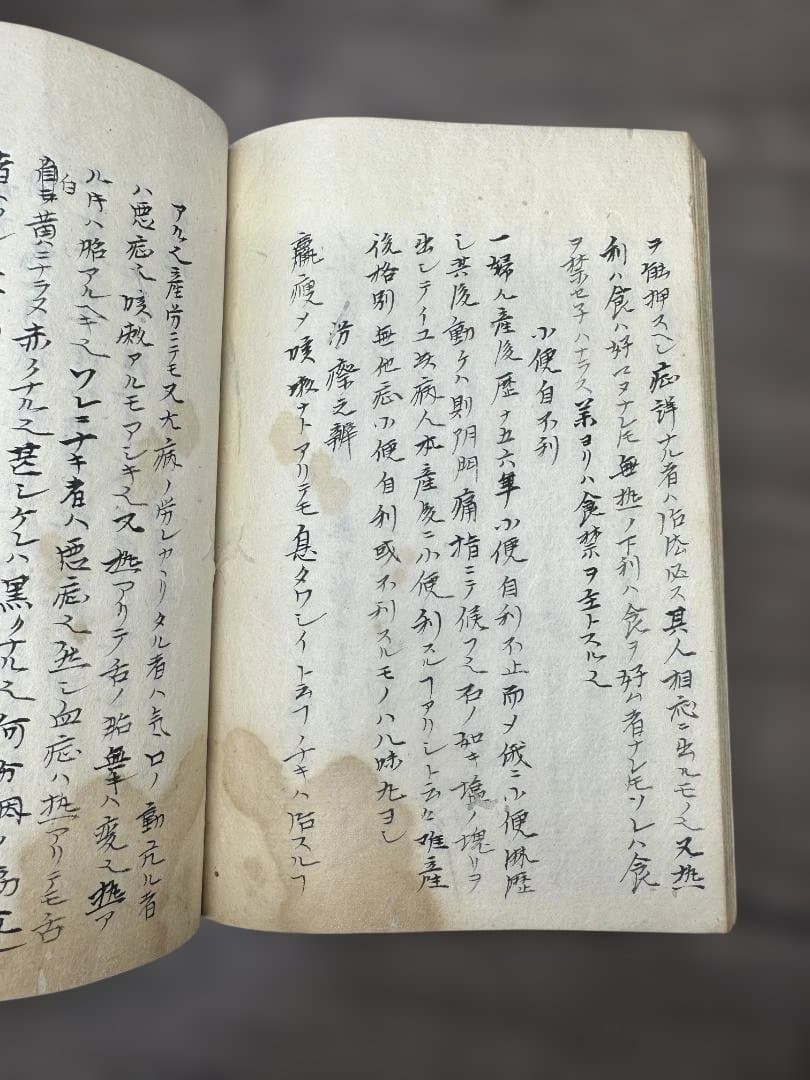 ヲ能押スヘシ症詳ナル者ハ治法必ス其人相応ニ出ルモノ也又熱
利ハ食ハ好マヌナレ𪜈無熱ノ下利ハ食ヲ好ム者ナレ𪜈ソレハ食
ヲ禁セ子ハナラス薬ヨリハ食禁ヲ主トスル也
小便自不利
一婦人産後歴ヿ五六年小便自利不止而〆俄ニ小便淋瀝
シ其後動ケハ則阴門痛指ニテ候フニ石ノ如キ塩ノ塊リヲ
出シテイユ此病人本産後ニ小便利スルヿアリシト云々難産
後格別無他症小便自利或不利スルモノハ八味丸ヨシ
労瘵之辨
羸瘦〆咳嗽ナトアリテモ息タワシイト云フノナキハ治スルヿ
アル也産労ニテモ又大病ノ労レカヽリタル者ハ気口ノ動亢ル者
ハ悪症也咳嗽アルモアシキ也又熱アリテ舌ノ胎無キハ変也熱ア
ル片ハ胎アルヘキ也ソレニナキ者ハ悪症也然シ血症ハ熱アリテモ舌
白黄ハニナラス赤クナル也甚シケレハ黒クナル也何分因ノ